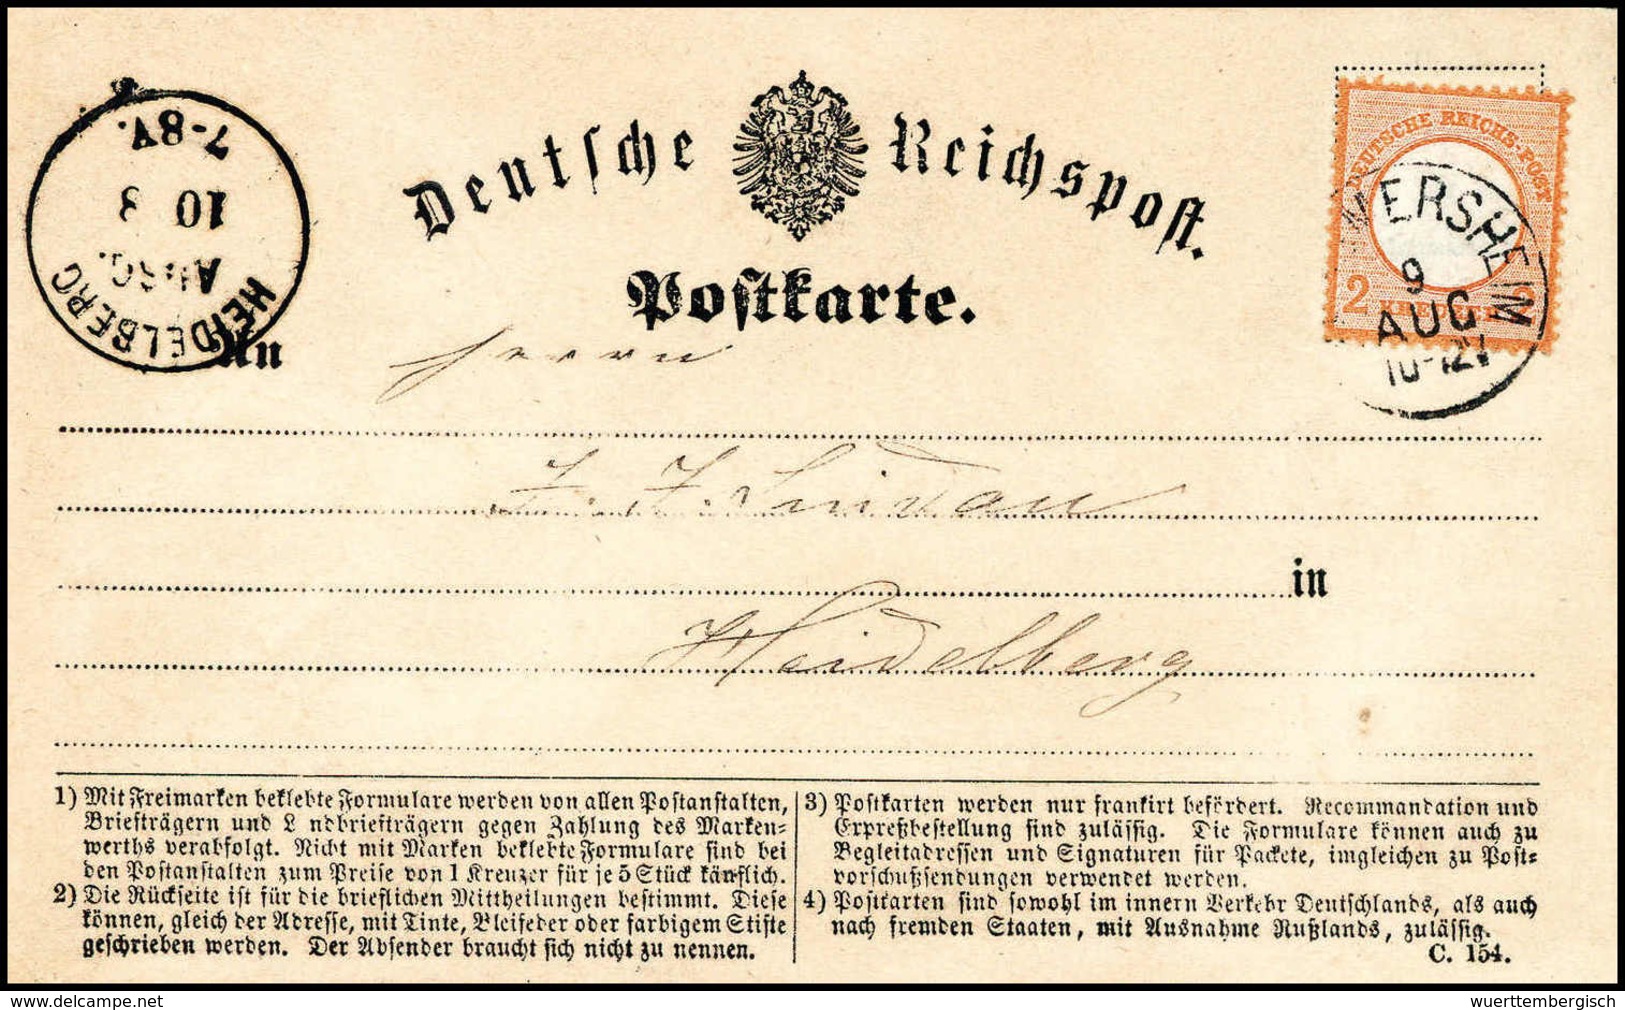 Deutsche Reichspost.
Postkarte.
HEIDELBERG
AUSG.
10 8
7-8V.
DEUTSCHE REICHS-POST
2 KREUZER 2
ERSHEIM
9
AUG
10-12V
An
Herrn
in
Heidelberg
1) Mit Freimarken beklebte Formulare werden von allen Postanstalten,
Briefträgern und L ndbriefträgern gegen Zahlung des Marken-
werths verabfolgt. Nicht mit Marken beklebte Formulare sind bei
den Postanstalten zum Preise von 1 Kreuzer für je 5 Stück käuflich.
2) Die Rückseite ist für die brieflichen Mittheilungen bestimmt. Diese
können, gleich der Adresse, mit Tinte, Bleifeder oder farbigem Stifte
geschrieben werden. Der Absender braucht sich nicht zu nennen.
3) Postkarten werden nur frankirt befördert. Recommandation und
Expreßbestellung sind zulässig. Die Formulare können auch zu
Begleitadressen und Signaturen für Packete, imgleichen zu Post-
vorschußsendungen verwendet werden.
4) Postkarten sind sowohl im innern Verkehr Deutschlands, als auch
nach fremden Staaten, mit Ausnahme Rußlands, zulässig.
C. 154.
delcampe.net
wuerttembergisch